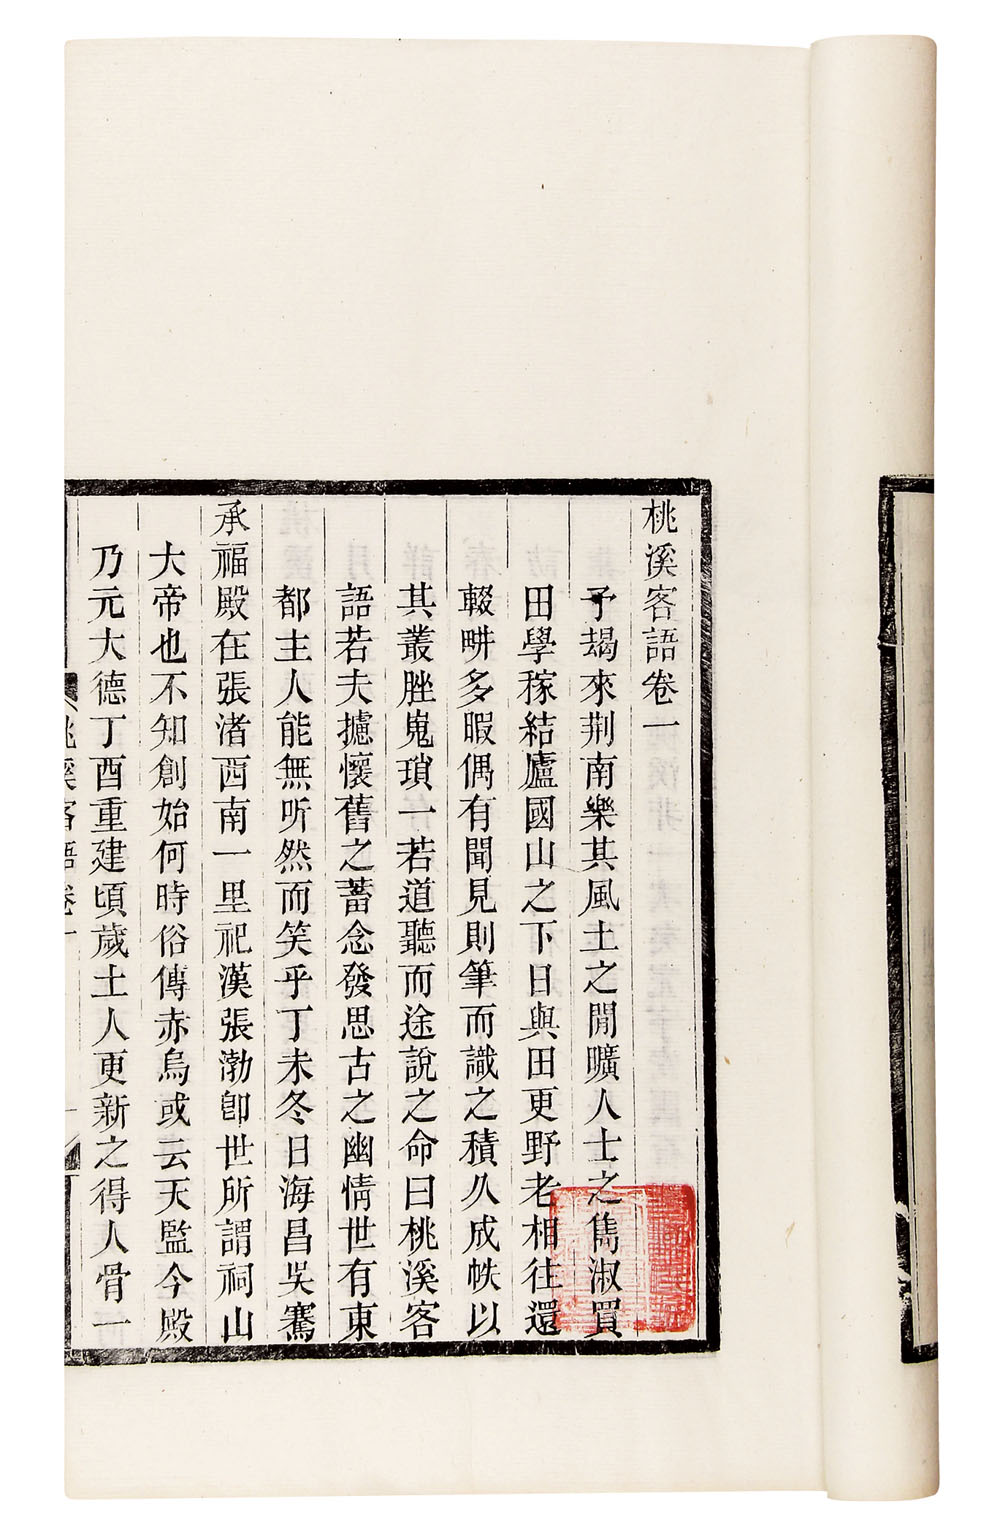 桃溪客語卷一
予朅來荆南樂其風土之閒曠人士之雋淑買
田學稼結廬國山之下日與田更野老相往還
輟畊多暇偶有聞見則筆而識之積久成帙以
其叢脞嵬瑣一若道聽而途說之命曰桃溪客
語若夫攄懷舊之蓄念發思古之幽情世有東
都主人能無听然而笑乎丁未冬日海昌吳騫
承福殿在張渚西南一里祀漢張渤卽世所謂祠山
大帝也不知創始何時俗傳赤烏或云天監今殿
乃元大德丁酉重建頃歲土人更新之得人骨一
桃溪客語卷一